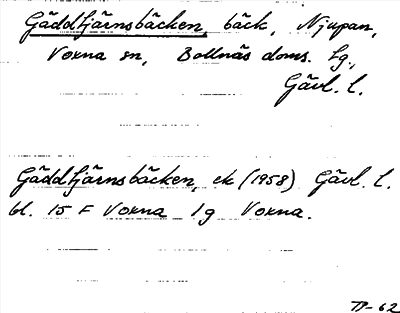 Gäddtjärnsbäcken, bäck, Njupan,
Voxna sn, Bollnäs doms. lg.,
Gävl. l.
Gäddtjärnsbäcken, ek (1958) Gävl. l.
bl. 15 F Voxna 1g Voxna.
-62